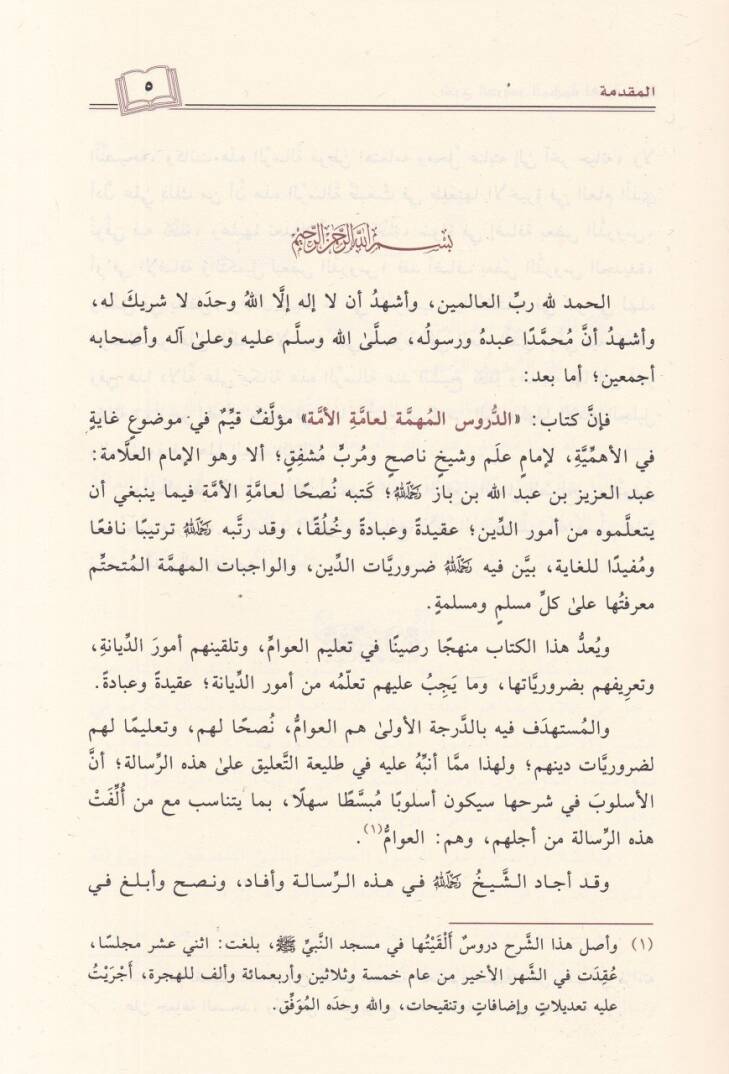 المقدمة
٥
بسم الله الرحمن الرحيم
الحمد لله ربِّ العالمين، وأشهدُ أن لا إله إلَّا اللهُ وحدَه لا شريكَ له،
وأشهدُ أنَّ مُحمَّدًا عبدهُ ورسولُه، صلَّىٰ الله وسلَّم عليه وعلىٰ آله وأصحابه
أجمعين؛ أما بعد:
فإنَّ كتاب: «الدُّروس المُهمَّة لعامَّةِ الأمَّة» مؤلَّفٌ قيِّمٌ في موضوعٍ غايةٍ
في الأهمِّيَّةِ، لإمامِ علَم وشيخٍ ناصحٍ ومُربٍّ مُشفِقٍ؛ ألا وهو الإمام العلَّامة:
عبد العزيز بن عبد الله بن باز رَحِمَهُ اللهُ؛ كَتبه نُصحًا لعامَّةِ الأمَّة فيما ينبغي أن
يتعلَّموه من أمور الدِّين؛ عقيدةً وعبادةً وخُلُقًا، وقد رتَّبه رَحِمَهُ اللهُ ترتيبًا نافعًا
ومُفيدًا للغاية، بيَّن فيه رَحِمَهُ اللهُ ضروريَّات الدِّين، والواجبات المهمَّة المُتحتِّم
معرفتُها علىٰ كلِّ مسلمٍ ومسلمةٍ.
ويُعدُّ هذا الكتاب منهجًا رصينًا في تعليم العوامِّ، وتلقينهم أمورَ الدِّيانةِ،
وتعرِيفهم بضروريَّاتها، وما يَجِبُ عليهم تعلّمُه من أمور الدِّيانة؛ عقيدةً وعبادةً.
والمُستهدَف فيه بالدَّرجة الأولىٰ هم العوامُّ، نُصحًا لهم، وتعليمًا لهم
لضروريَّات دينهم؛ ولهذا ممَّا أنبِّهُ عليه في طليعة التَّعليق علىٰ هذه الرِّسالة؛ أنَّ
الأسلوبَ في شرحها سيكون أسلوبًا مُبسَّطًا سهلًا، بما يتناسب مع من أُلِّفَتْ
هذه الرِّسالة من أجلهم، وهم: العوامُّ(١).
وقد أجاد الشَّيخُ رَحِمَهُ اللهُ في هذه الرِّسالة وأفاد، ونصح وأبلغ في
(١) وأصل هذا الشَّرح دروسٌ أَلْقَيْتُها في مسجد النَّبيِّ ﷺ، بلغت: اثني عشر مجلسًا،
عُقِدَت في الشَّهر الأخير من عام خمسة وثلاثين وأربعمائة وألف للهجرة، أَجْرَيْتُ
عليه تعديلاتٍ وإضافاتٍ وتنقيحات، والله وحدَه المُوَفِّق.